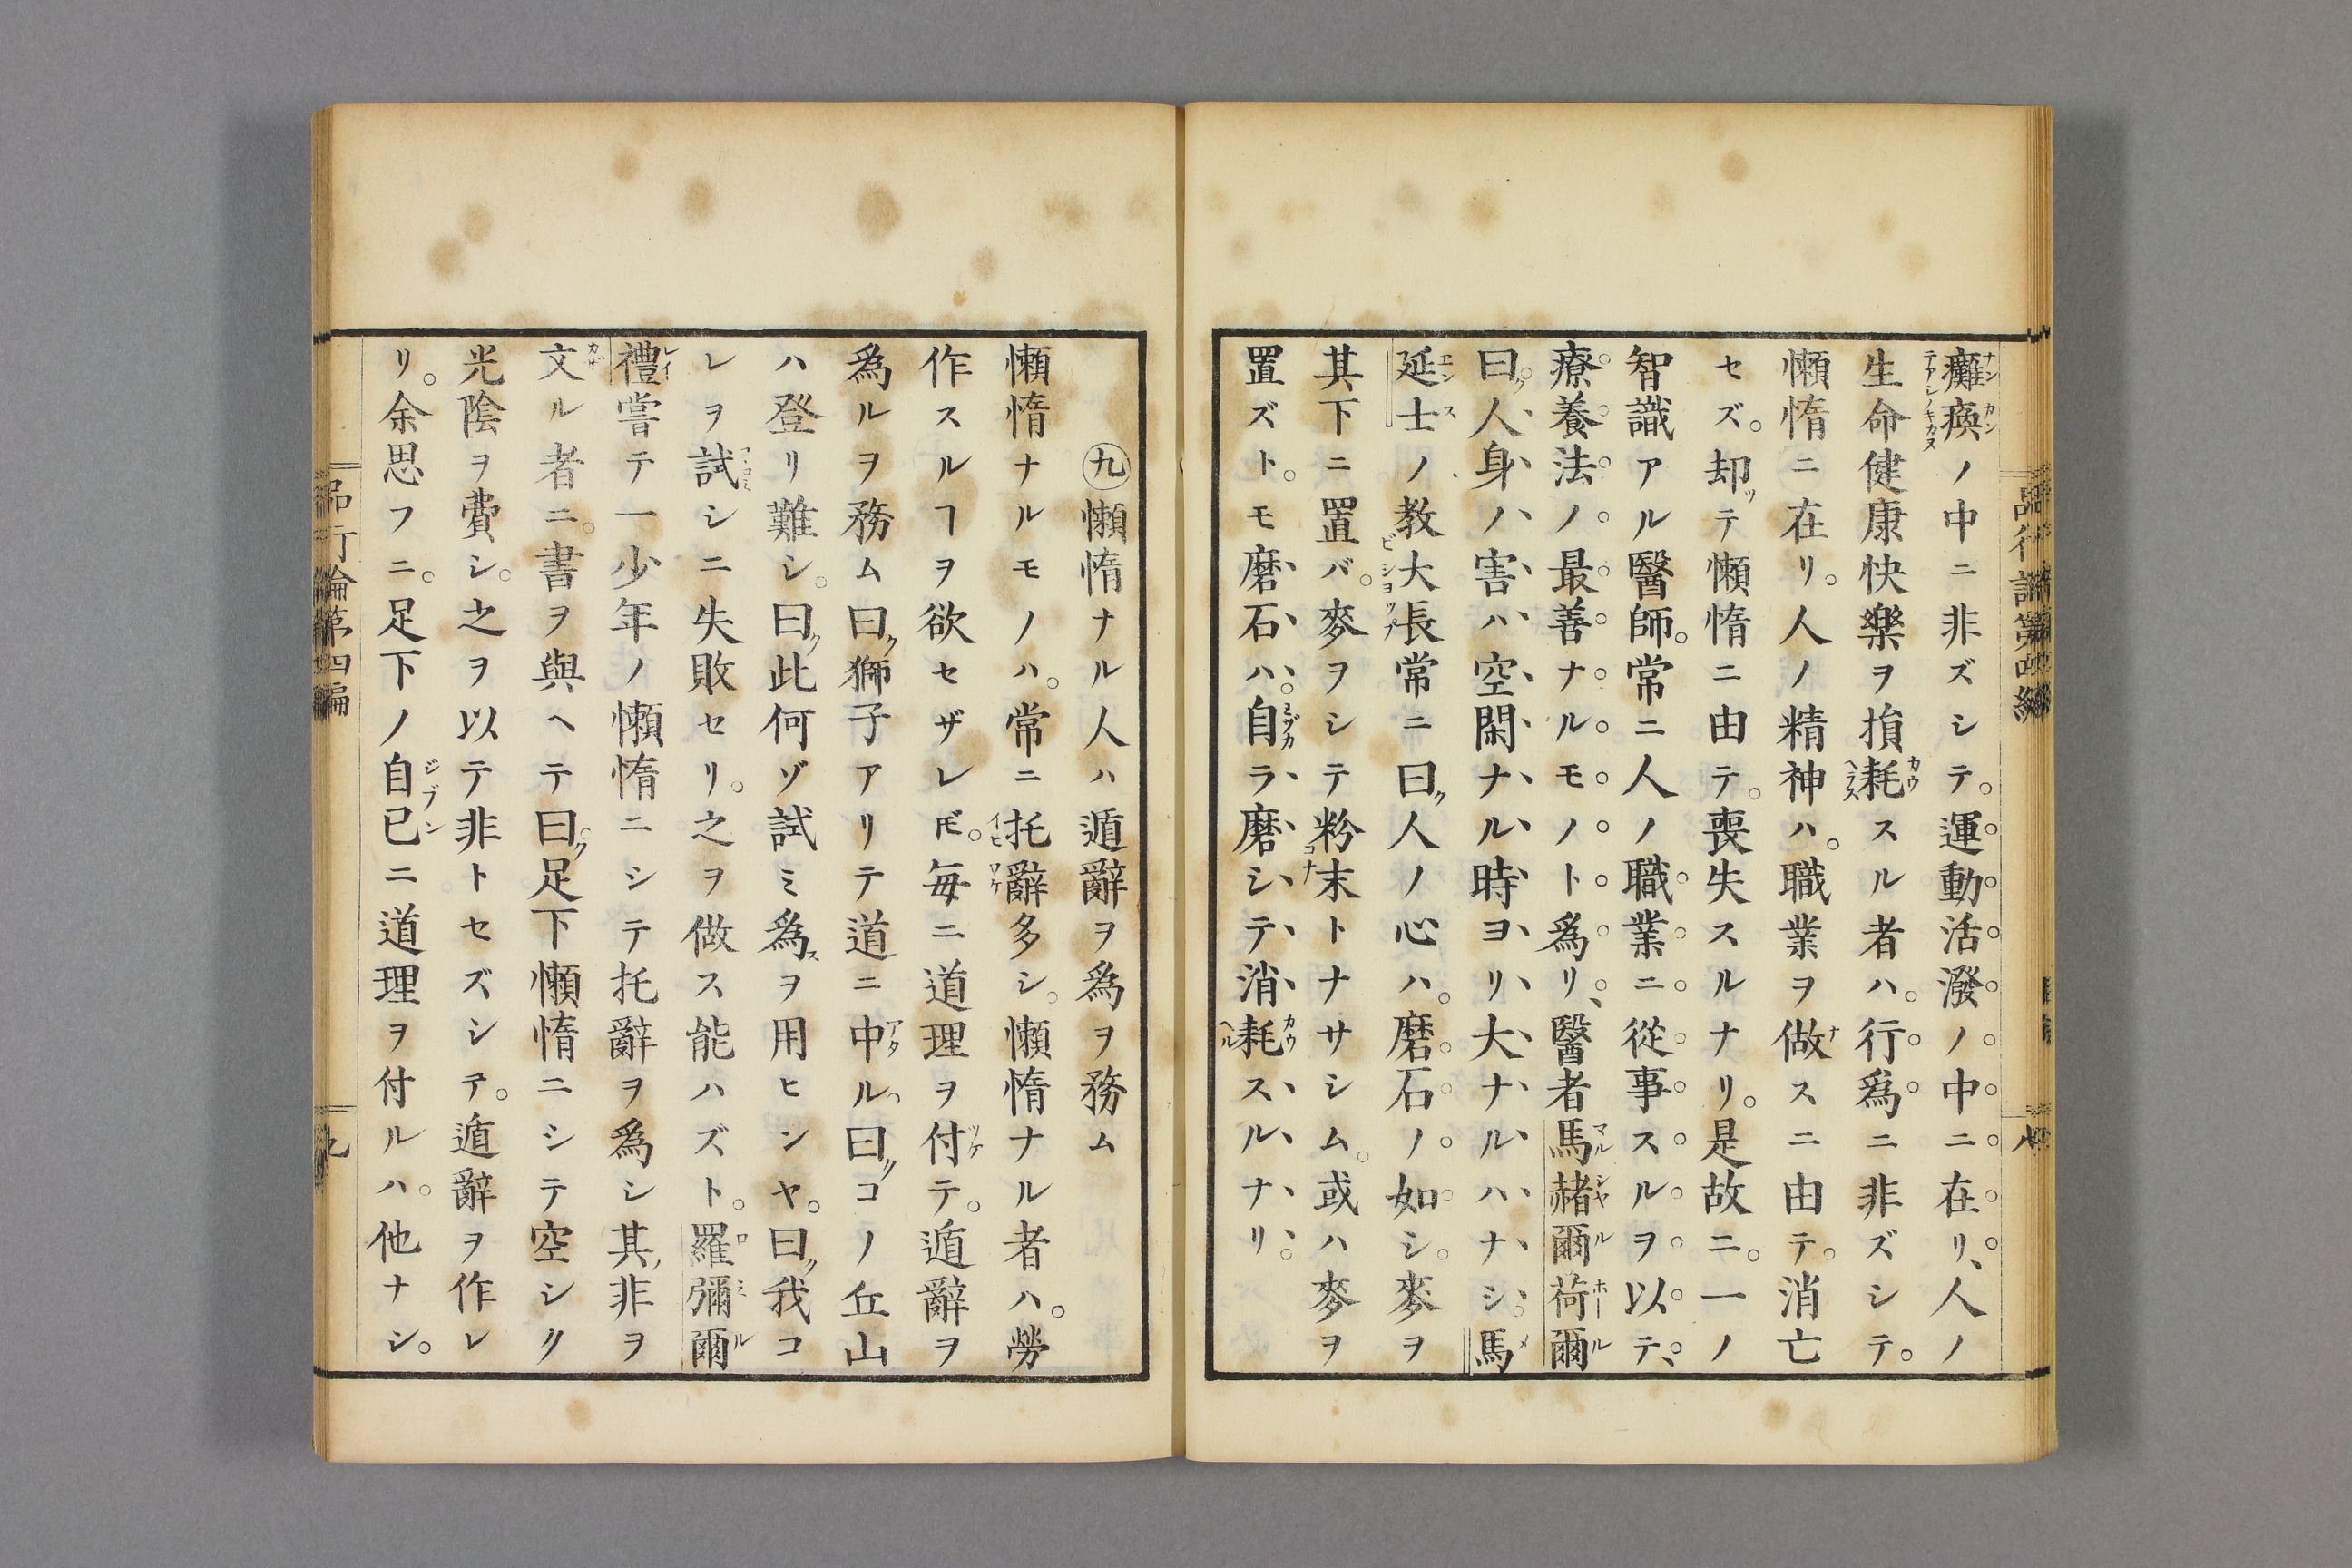 癱瘓ノ中ニ非ズシテ。運動活潑ノ中ニ在リ、人ノ
生命健康快樂ヲ損耗スル者ハ。行爲ニ非ズシテ。
懶惰ニ在リ。人ノ精神ハ。職業ヲ做スニ由テ。消亡
セズ。却ッテ懶惰ニ由テ。喪失スルナリ。是故ニ。一ノ
智識アル醫師。常ニ人ノ職業ニ從事スルヲ以テ、
療養法ノ最善ナルモノト爲リ、醫者馬赭爾荷爾
曰ク。人身ノ害ハ空閑ナル時ヨリ大ナルハナシ。馬
延士ノ教大長常ニ曰ク人ノ心ハ。磨石ノ如シ。麥ヲ
其下ニ置バ。麥ヲシテ粉末トナサシム。或ハ麥ヲ
置ズト。モ磨石ハ。自ラ磨シテ消耗スルナリ。
品行論第四編
八
九 懶惰ナル人ハ遁辭ヲ爲ヲ務ム
懶惰ナルモノハ。常ニ托辭多シ。懶惰ナル者ハ。勞
作スルヿヲ欲セザレ𪜈。毎ニ道理ヲ付テ。遁辭ヲ
爲ルヲ務ム曰ク獅子アリテ道ニ中ル。曰クコノ丘山
ハ登リ難シ。曰ク此何ゾ試ミ爲スヲ用ヒンヤ。曰ク我コ
レヲ試シニ失敗セリ。之ヲ做ス能ハズト。羅彌爾
禮嘗テ一少年ノ懶惰ニシテ托辭ヲ爲シ其ノ非ヲ
文ル者ニ。書ヲ與ヘテ曰ク。足下懶惰ニシテ空シク
光陰ヲ費シ。之ヲ以テ非トセズシテ。遁辭ヲ作レ
リ。余思フニ。足下ノ自已ニ道理ヲ付ルハ。他ナシ。
品行論第四編
九